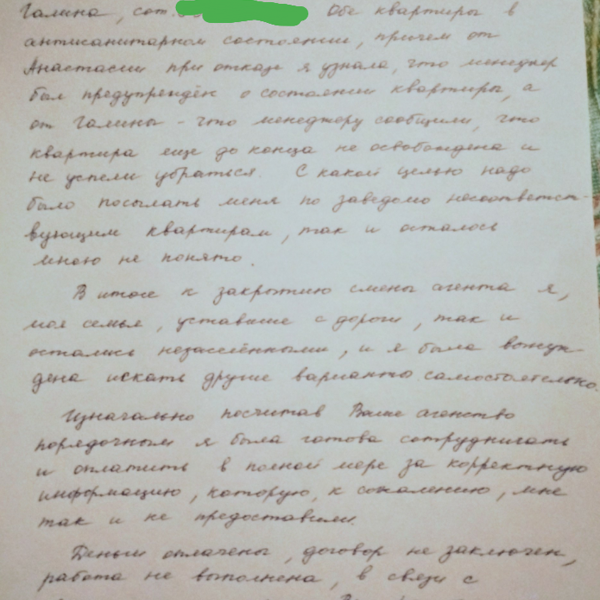 Галина, сот. Обе квартиры в
антисанитарном состоянии, причем от
Анастасии при отказе я узнала, что менеджер
был предупреждён о состоянии квартиры, а
от Галины - что менеджеру сообщили, что
квартира еще до конца не освобождена и
не успели убраться. С какой целью надо
было посылать меня по заведомо несоответст-
вующим квартирам, так и осталось
мною не понято.
В итоге к закрытию смены агента я,
моя семья, уставшие с дороги, так и
остались незаселёнными, и я была вынуж-
дена искать другие варианты самостоятельно.
Изначально посчитав Ваше агенство
порядочным я была готова сотрудничать
и оплатить в полной мере за корректную
информацию, которую, к сожалению, мне
так и не предоставили.
Деньги оплачены, договор не заключен,
работа не выполнена, в связи с